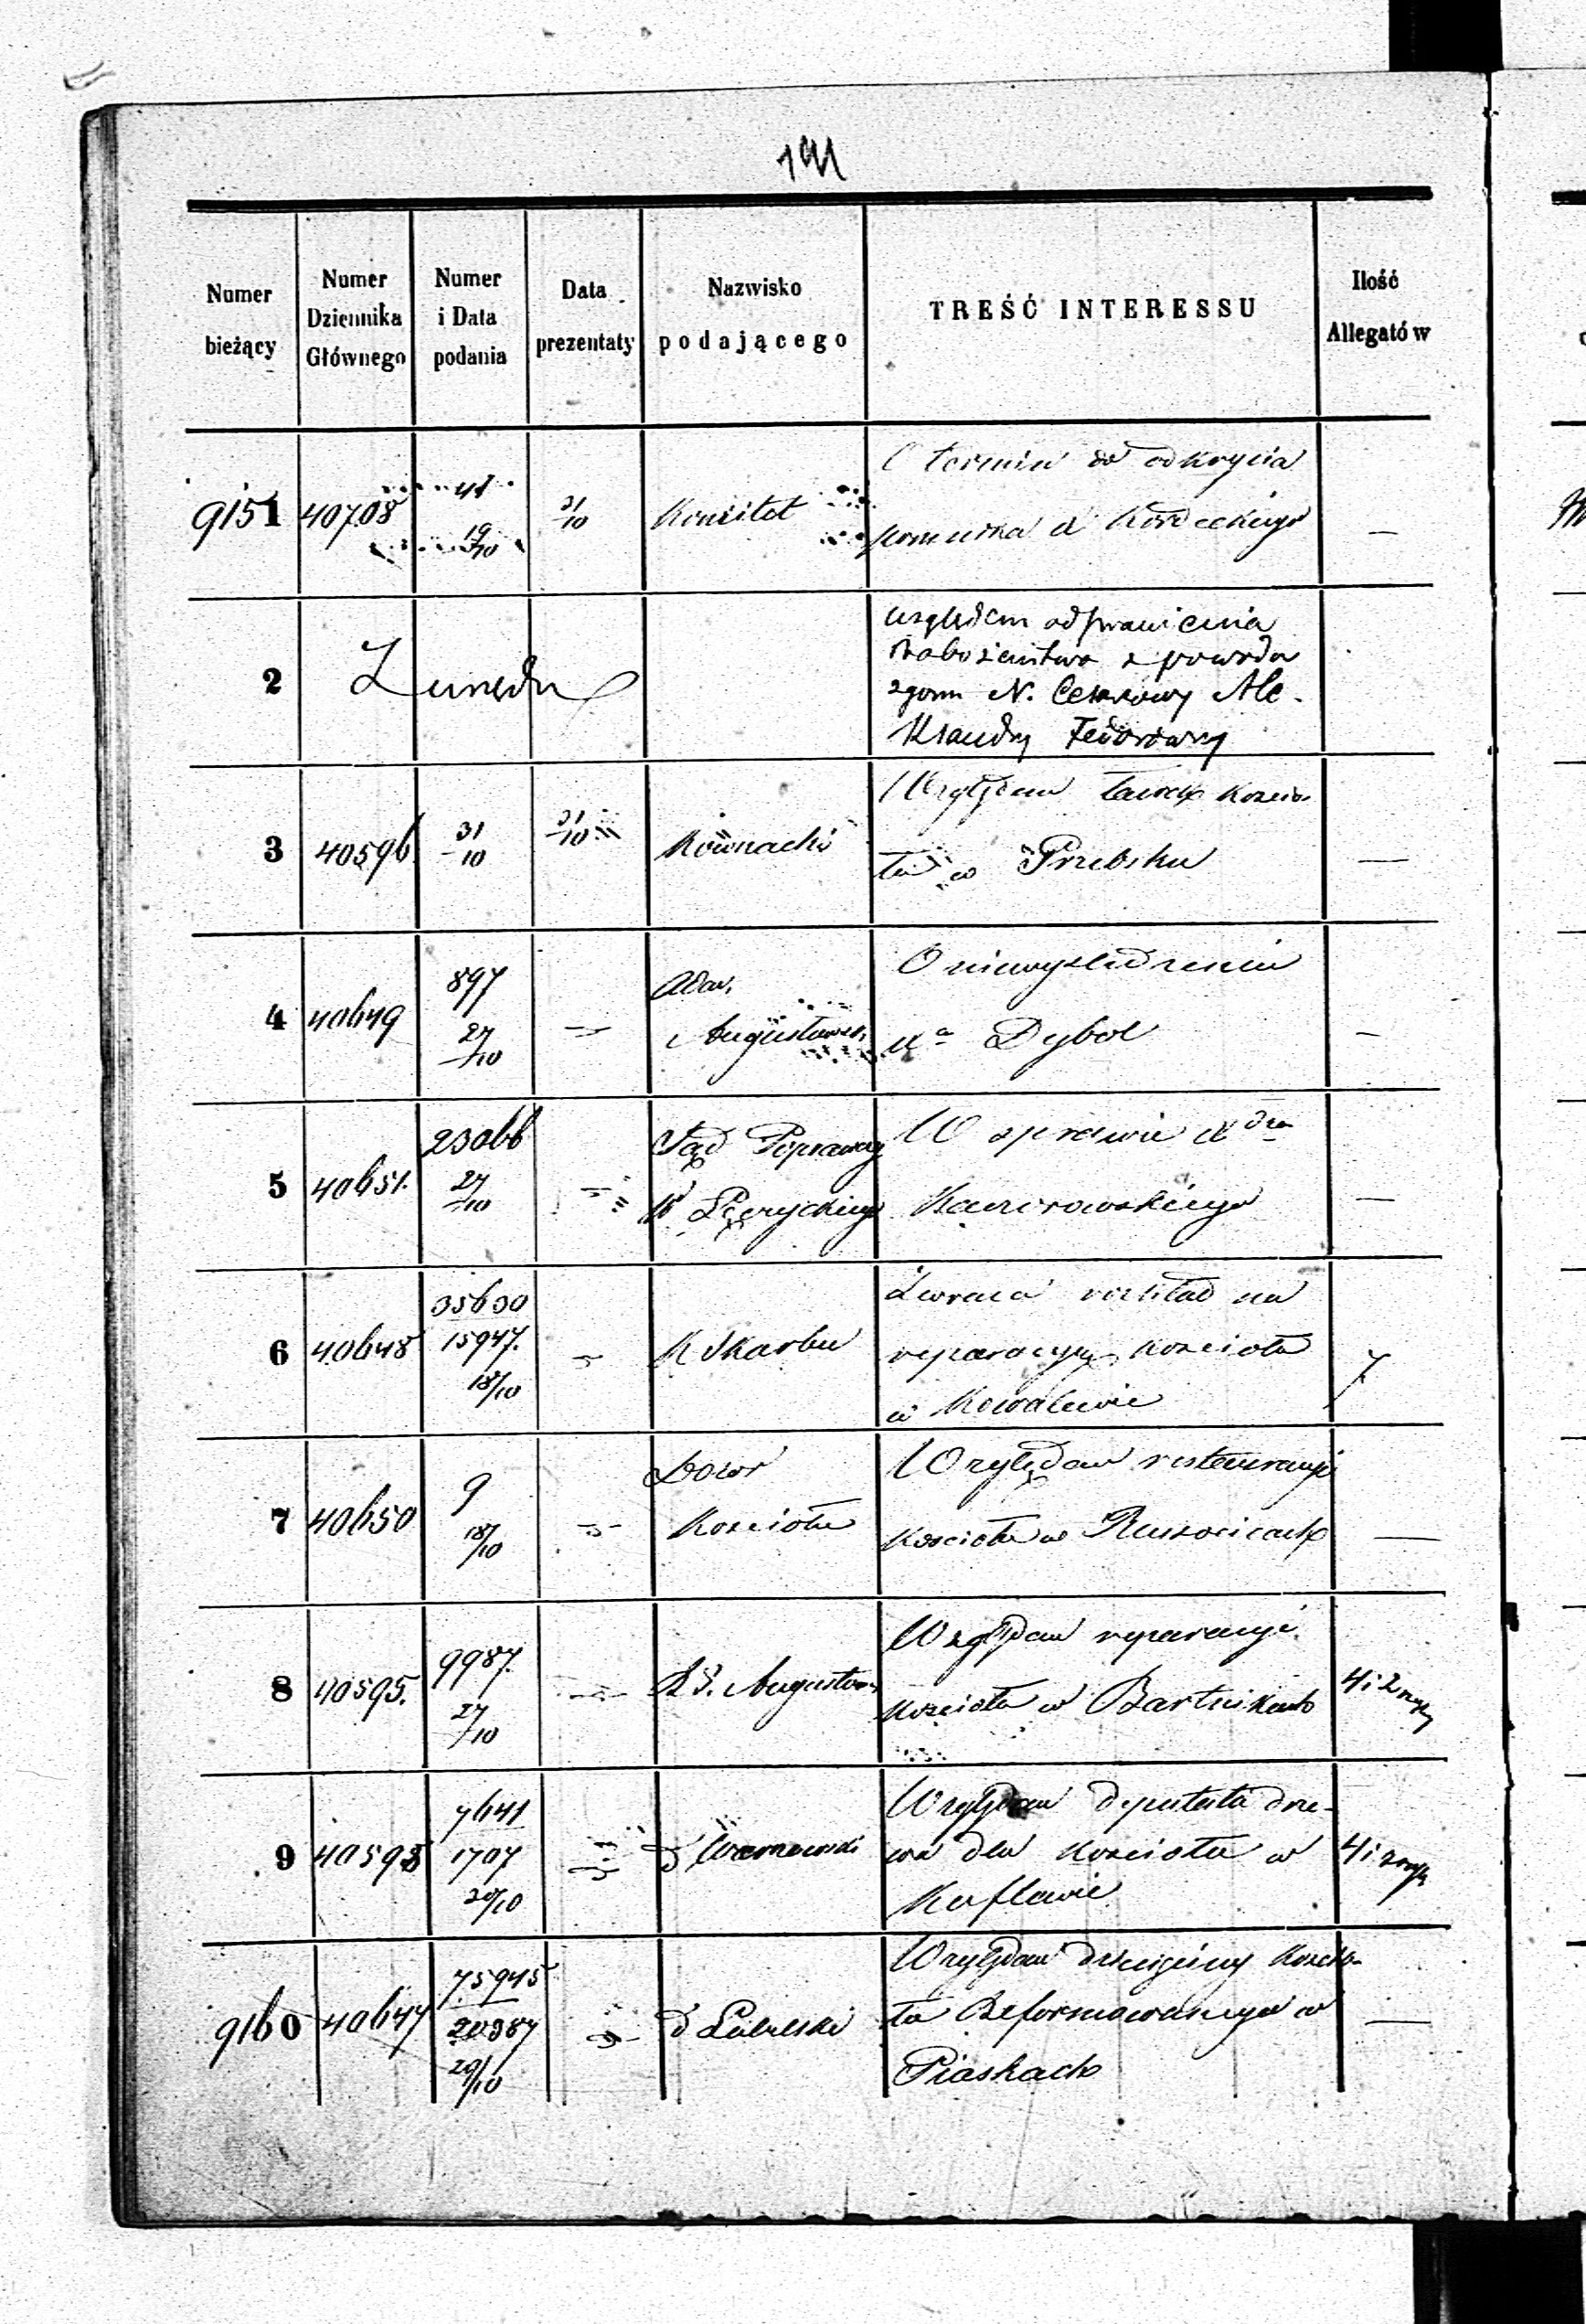 191
Numer bieżący
Numer Dziennika Głównego
Numer i Data podania
Data prezentaty
Nazwisko podającego
TREŚĆ INTERESSU
Ilość Allegatów
9151 40708 41 19/10 31/10 Komitet
O termin do odkrycia
pomnika Kordeckiego —
2 Z urzędu
względem odprawienia
nabożeństwa z powodu
zgonu N. Cesarzowy Ale-
ksandry Fedorówny
3 40596 31/10 31/10 Kownacki
Względem ławek kościo-
ła w —
4 40649 897 27/10 Adm. Augustows.
O niewyśledzeniu
Xa Dybol —
5 40651. 23066 27/10 Sąd Poprawczy
W sprawie
Kaczorowskiego —
6 40648 35630 15947. 18/10 K Skarbu
Zwraca rozkład na
reparacyą kościoła
w Kowalewie 7
7 40650 9 18/10 Dozór Kościoła
Względem restauracyi
kościoła w Ruszocicach —
8 40595. 9987. 27/10 R G. Augustow.
Względem reparacyi
kościoła w Bartnikach 4 i 2
9 40598 7641 1707 20/10 d Warszawski
Względem deputatu drze-
wa dla kościoła w
Kuflewie 4 i
9160 40647 75945 20387 29/10 d Lubelski
Względem dziesięciny kościo-
ła Reformowanego w
Piaskach —